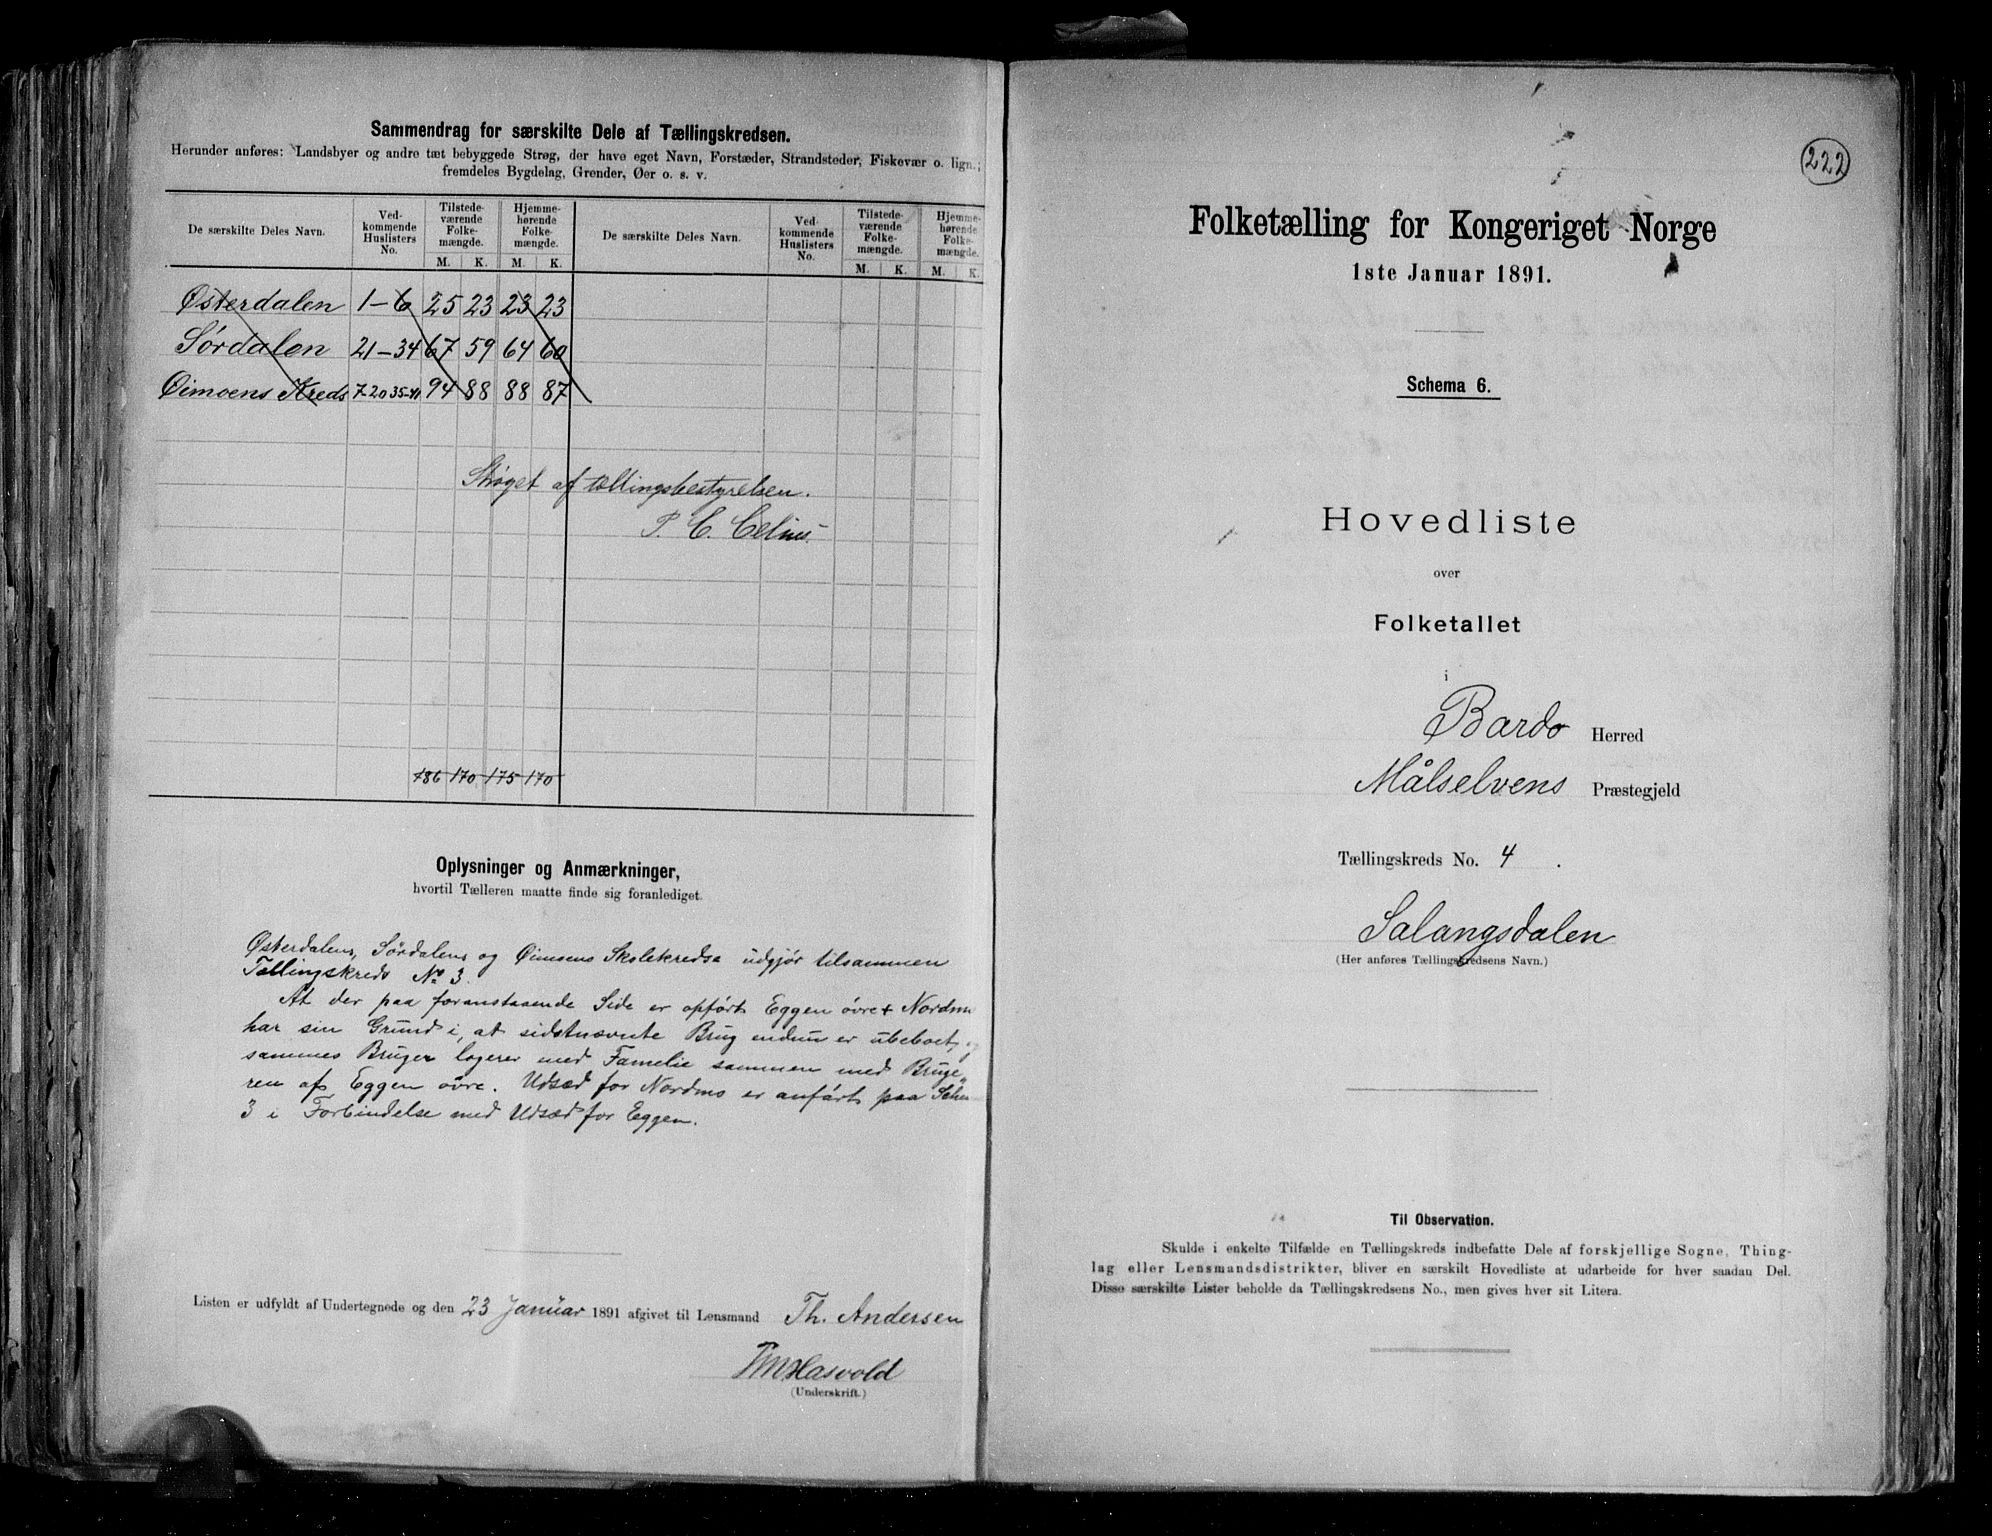 Sammendrag for særskilte Dele af Tællingskredsen.
Herunder anføres: Landsbyer og andre tæt bebyggede Strøg, der have eget Navn, Forstæder, Strandsteder, Fiskevær o. lign.;
fremdeles Bygdelag, Grender, Øer o. s. v.
De særskilte Deles Navn. Ved-kommende Huslisters No. Tilstede-værende Folke-mængde. Hjemme-hørende Folke-mængde. De særskilte Deles Navn. Ved-kommende Huslisters No. Tilstede-værende Folke-mængde. Hjemme-hørende Folke-mængde.
M. K. M. K. M. K. M. K.
Østerdalen 1-6 25 23 23 23
Sørdalen 21-34 67 59 64 60
Øimoens Kreds 7-20 35-41 94 88 88 87
Strøget af tællingsbestyrelsen.
P. C. Celius
186 170 175 170
Oplysninger og Anmærkninger,
hvortil Tælleren maatte finde sig foranlediget.
Østerdalens, Sørdalens og Øimoens Skolekredse udgjør tilsammen
Tællingskreds No 3.
At der paa foranstaaende Side er opført Eggen övre + Nordmo
har sin Grund i, at sidstnævnte Brug endnu er ubeboet, og
sammes Bruger logerer med Familie sammen med Bruge-
ren af Eggen övre. Udsæd for Nordmo er anført paa Schema
3 i Forbindelse med Udsæd for Eggen.
Listen er udfyldt af Undertegnede og den 23 Januar 1891 afgivet til Lensmand Th. Andersen
Hasvold
(Underskrift.)
222
Folketælling for Kongeriget Norge
1ste Januar 1891.
Schema 6.
Hovedliste
over
Folketallet
i
Bardo Herred
Målselvens Præstegjeld
Tællingskreds No. 4.
Salangsdalen
(Her anføres Tællingskredsens Navn.)
Til Observation.
Skulde i enkelte Tilfælde en Tællingskreds indbefatte Dele af forskjellige Sogne, Thing-
lag eller Lensmandsdistrikter, bliver en særskilt Hovedliste at udarbeide for hver saadan Del.
Disse særskilte Lister beholde da Tællingskredsens No., men gives hver sit Litera.